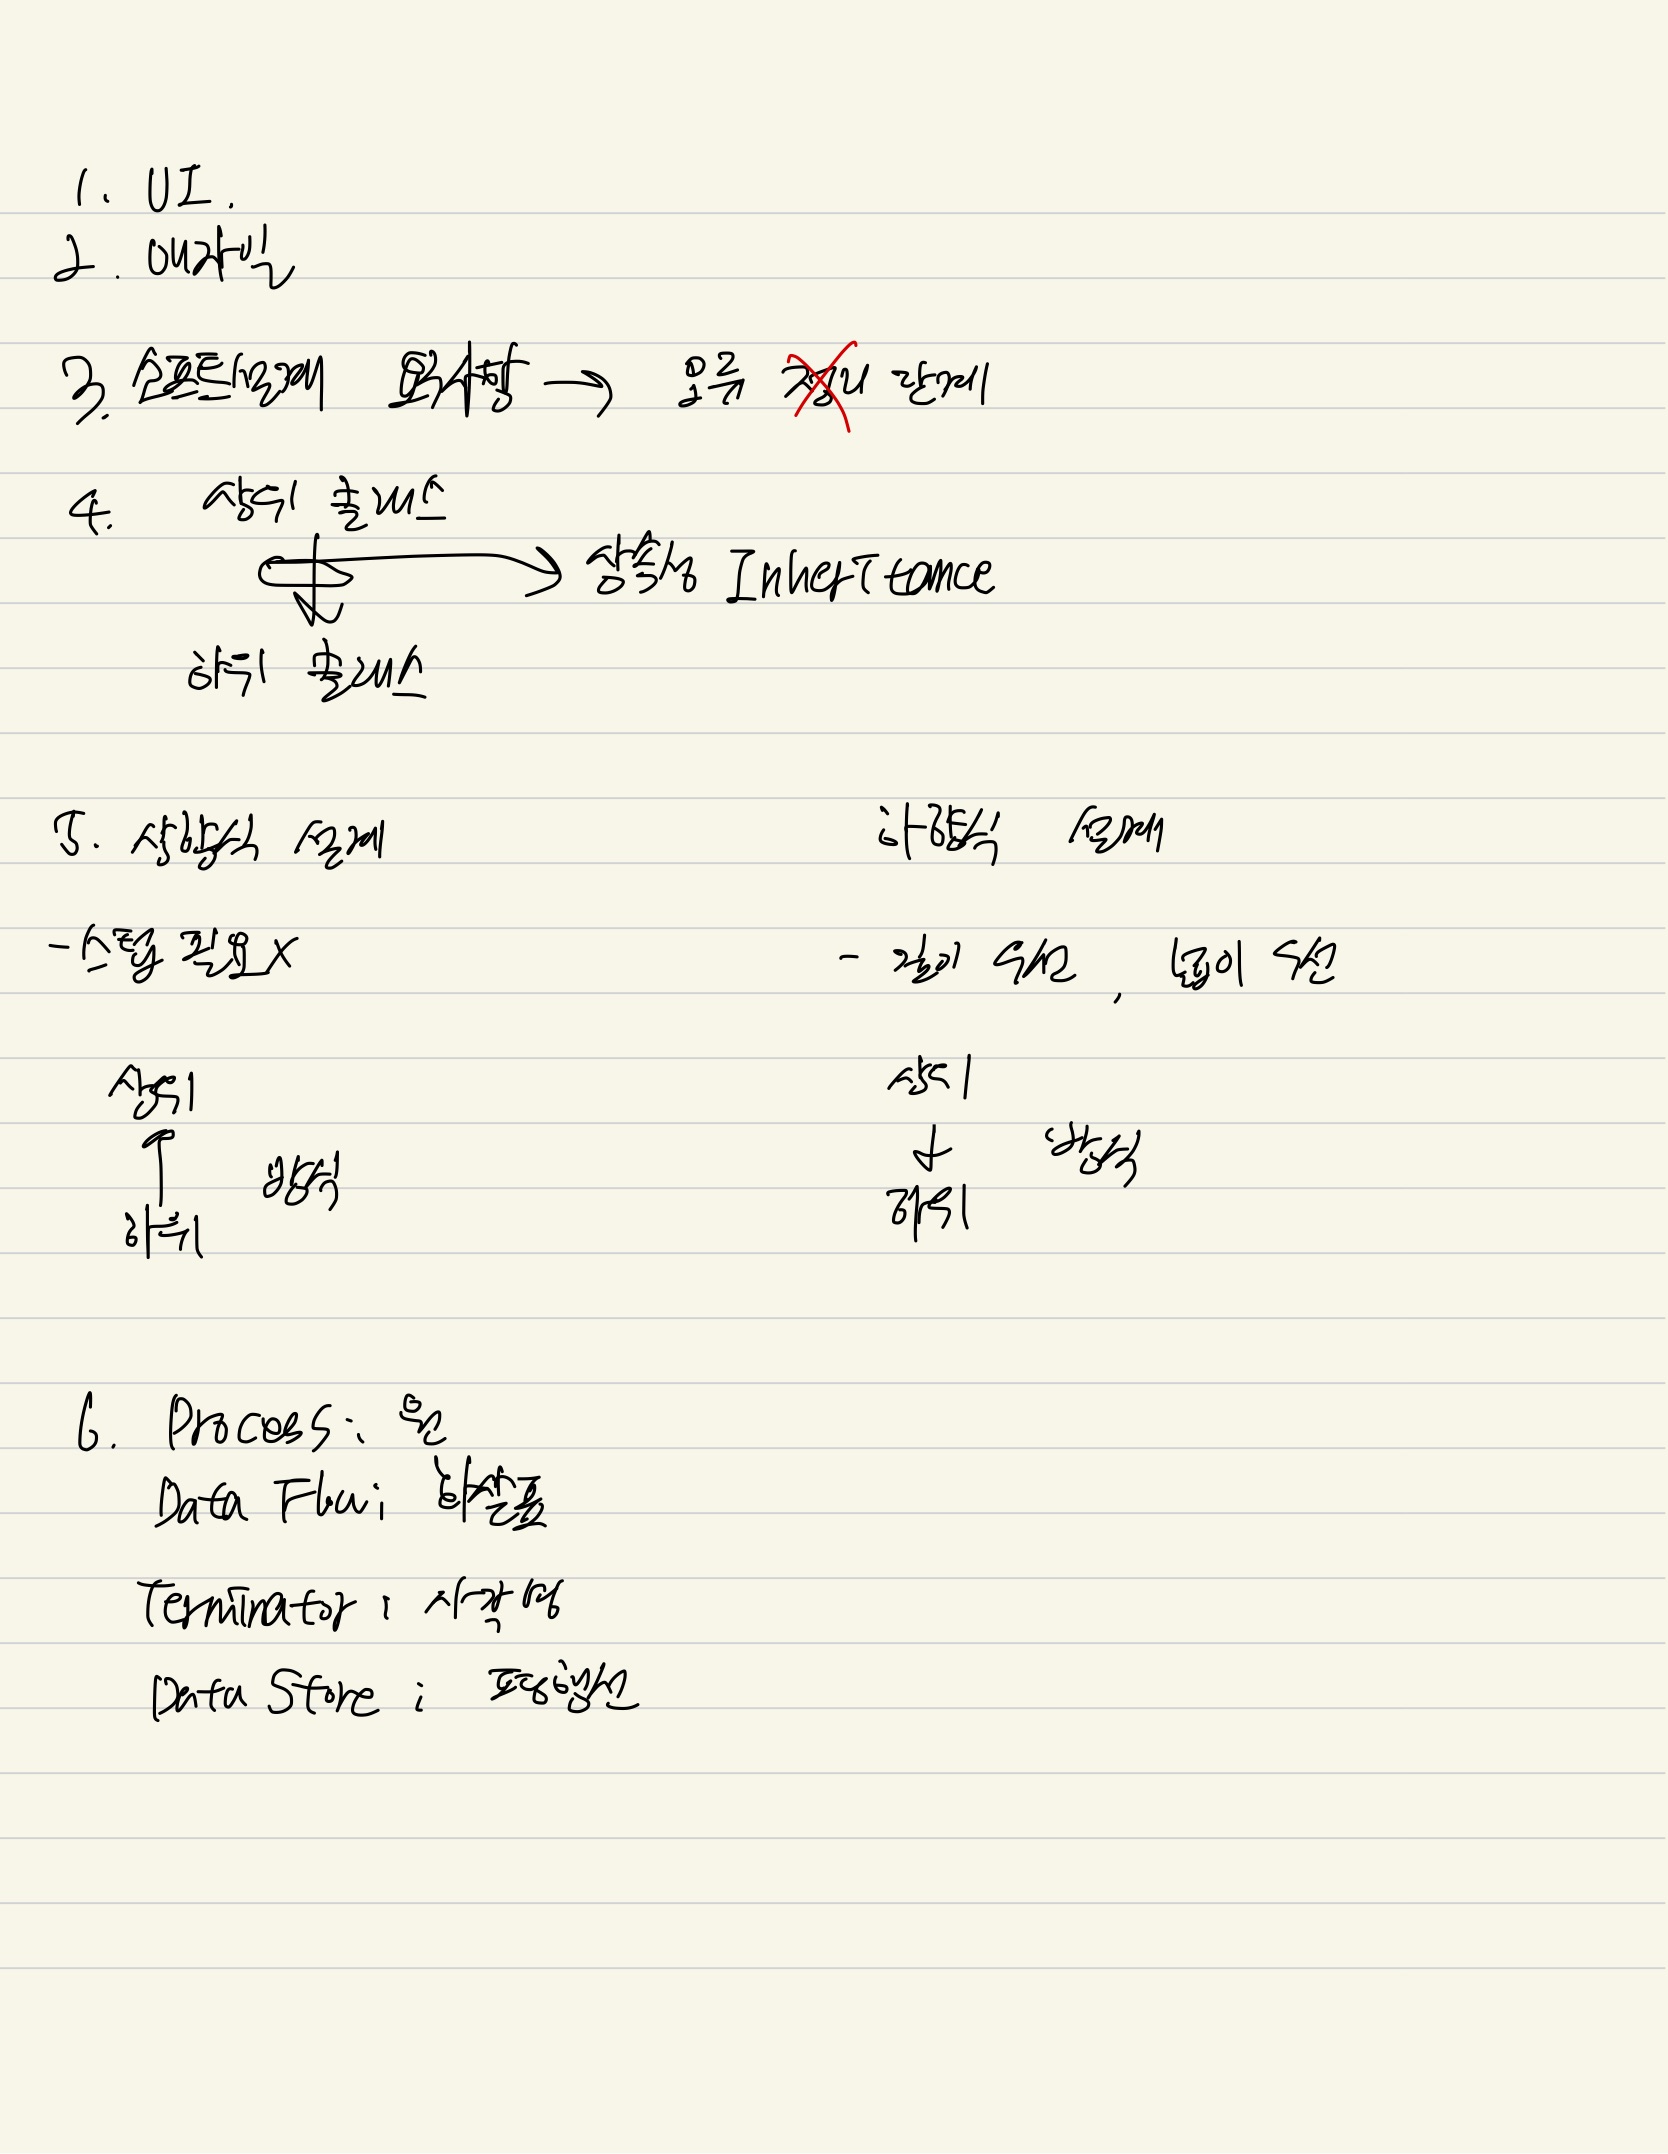 1. UI.
2. 애자일
3. 소프트설계 요구사항 → 오류 처리 단계
4. 상위 클래스
상속성 Inheritance
하위 클래스
5. 상향식 설계 하향식 설계
- 스텁 필요X - 깊이 우선, 넓이 우선
상위 상위
↑ 방식 ↓ 방식
하위 하위
6. Process: 원
Data Flow: 화살표
Terminator: 사각형
Data Store: 평행선